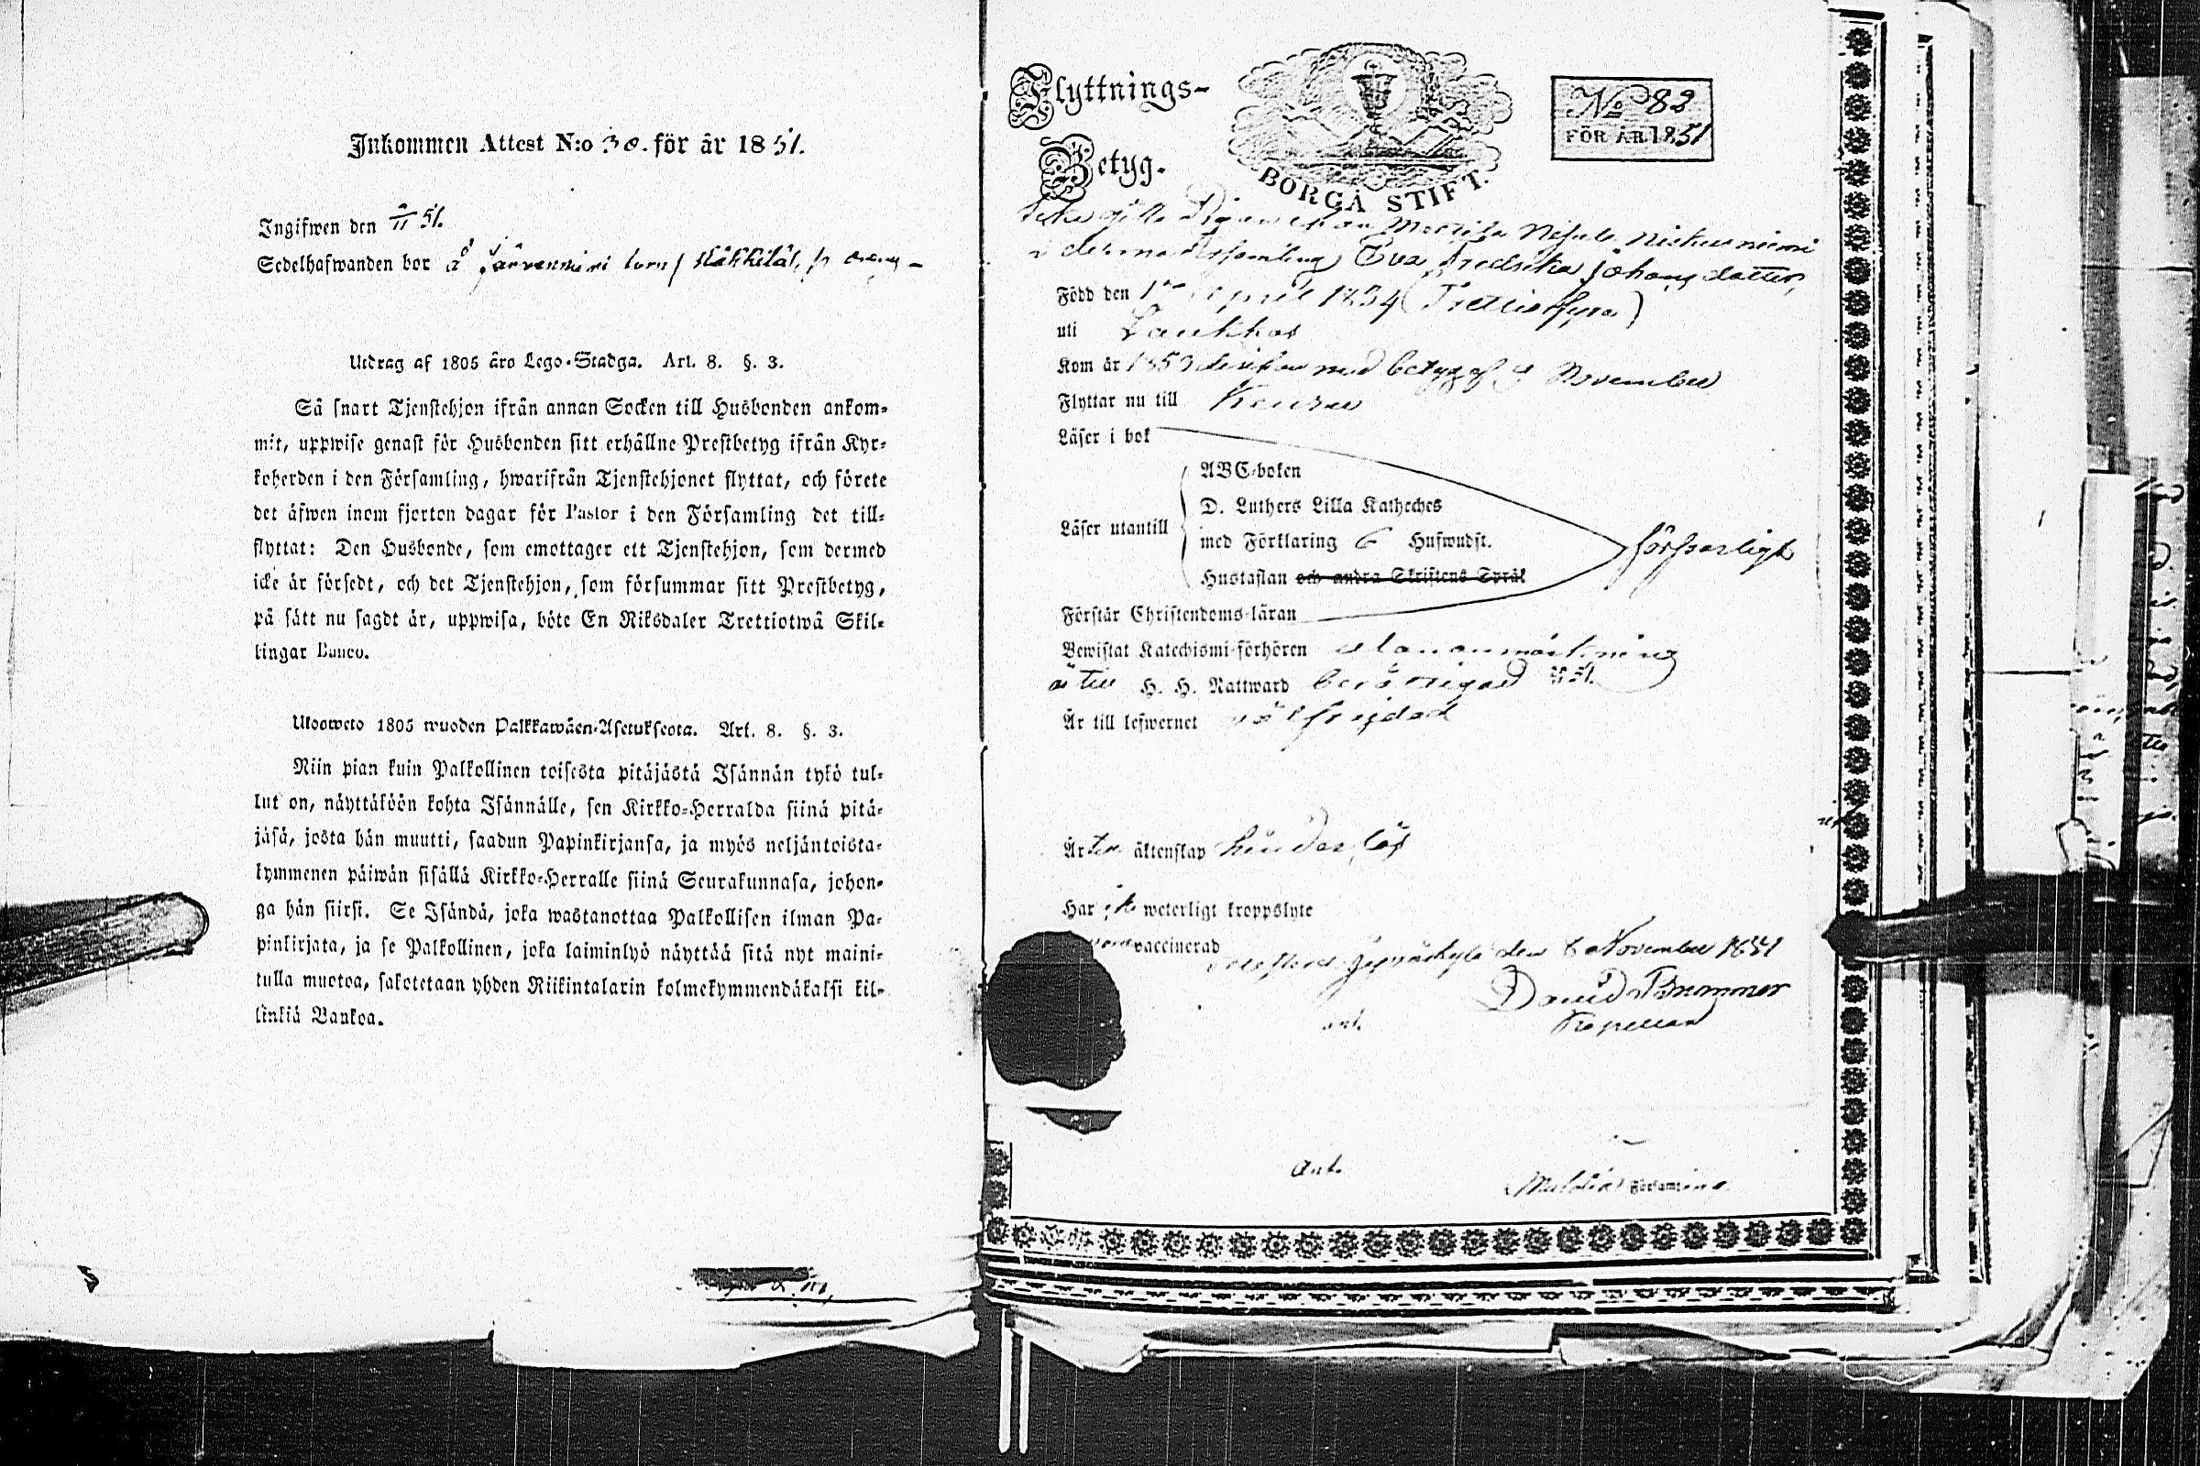 Inkommen Attest N:o 30. för år 1851.
Ingifwen den 9/11 51.
Sedelhafwanden bor å Järvenniemi torp
Utdrag af 1805 års Lego-Stadga. Art. 8. §. 3.
Så snart Tjenstehjon ifrån annan Socken till Husbonden ankom-
mit, uppwise genast för Husbonden sitt erhållne Prestbetyg ifrån Kyr-
koherden i den Församling, hwarifrån Tjenstehjonet flyttat, och förete
det äfwen inom fjorton dagar för Pastor i den Församling det till-
flyttat: Den Husbonde, som emottager ett Tjenstehjon, som dermed
icke är försedt, och det Tjenstehjon, som försummar sitt Prestbetyg,
på sätt nu sagdt är, uppwisa, böte En Riksdaler Trettiotwå Skil-
lingar Banco.
Ulosweto 1805 wuoden Palkkawäen-Asetuksesta. Art. 8. §. 3.
Niin pian kuin Palkollinen toisesta pitäjästä Isännän tykö tul-
lut on, näyttäköön kohta Isännälle, sen Kirkko-Herralda siinä pitä-
jäsä, josta hän muutti, saadun Papinkirjansa, ja myös neljäntoista-
kymmenen päiwän sisällä Kirkko-Herralle siinä Seurakunnasa, johon-
ga hän siirsi. Se Isändä, joka wastanottaa Palkollisen ilman Pa-
pinkirjata, ja se Palkollinen, joka laiminlyö näyttää sitä nyt maini-
tulla muotoa, sakotetaan yhden Riikintalarin kolmekymmendäkaksi kil-
linkiä Bankoa.
Flyttnings-
Betyg.
BORGÅ STIFT.
No 82
FÖR ÅR 1851
Pigan ifrån Niskaniemi
i denna församling Eva Fredrika Johansdotter,
Född den 1 April 1834 (Trettiofyra)
uti Laukkas
Kom år 1850 med betyg af November
Flyttar nu till Keuru
Läser i bok
ABC-boken
D. Luthers Lilla Katheches
Läser utantill
med Förklaring 6 Hufwudst.
Hustaflan och andra Skriftens Språk
försvarligt
Förstår Christendoms-läran
Bewistat Katechismi-förhören utan anmärkning
är till H. H. Nattward berättigad 51.
Är till lefwernet välfrejdad
Är till äktenskap hinderslös
Har ej weterligt kroppslyte
vaccinerad
Jyväskylä den 6 November 1851
David Brummer
Kapellan
Ant.